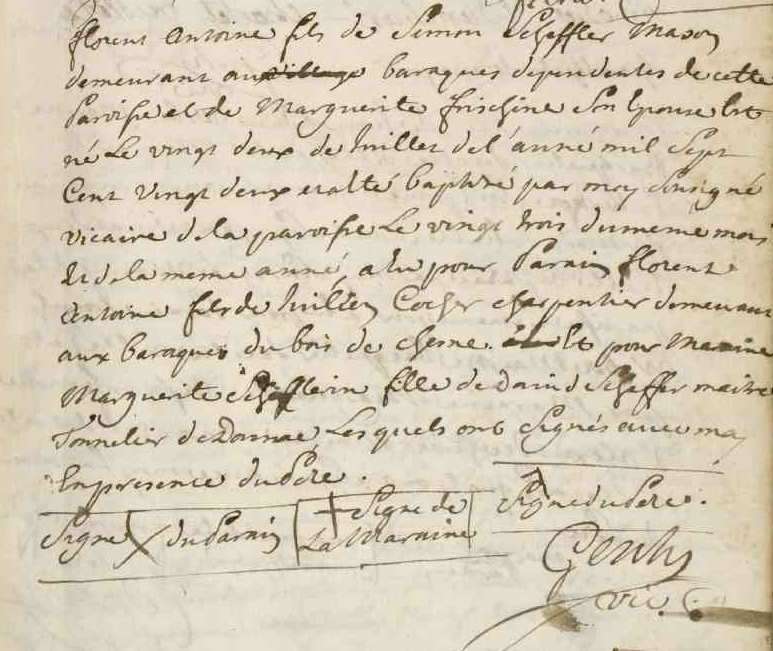 florent Antoine fils de Simon Scheffler Mason
demeurant aux baraques dependentes de cette
Paroisse et de Marguerite frischine Son Epouse Est
né Le vingt deux de Juillet de l'année mil Sept
Cent Vingt deux et a Eté baptisé par moy Sousigné
vicaire de la paroisse Le vingt trois du meme mois
Et de la meme année, a Eu pour Parain florent
Antoine fils de Cocher charpentier demeurant
aux baraques du bois de chesne. Et pour Maraine
Marguerite Schefflerin fille de david Scheffler maitre
Tonnelier de Lesquels ont Signés avec moy
En presence du Pere.
Signe X du Parain + Signe de La Maraine Signe du Pere.
vic.